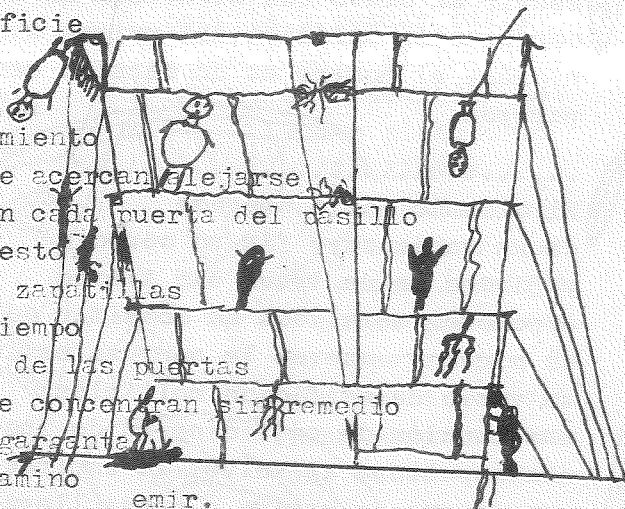 ficie
miento
e acercan alejarse
n cada puerta del pasillo
esto
zapatillas
iempo
de las puertas
e concentran sin remedio
garganta
amino
emir.